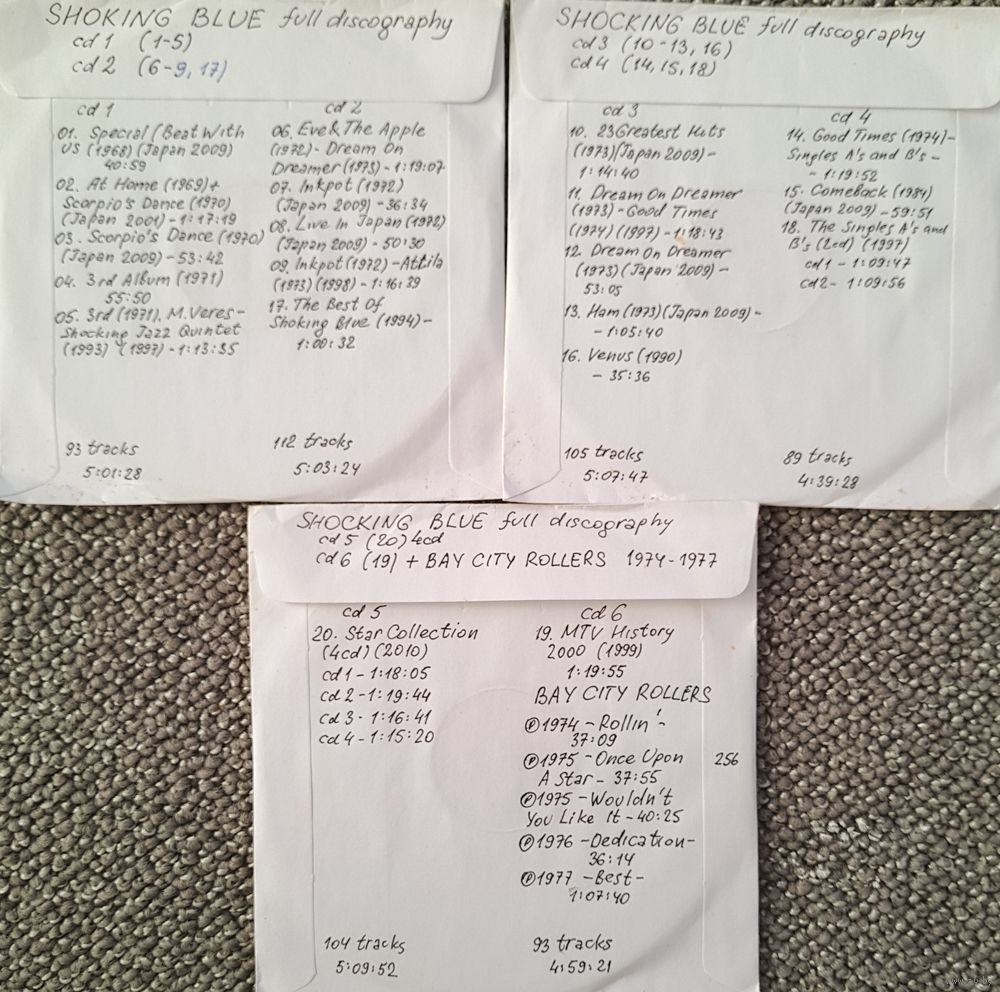 SHOKING BLUE full discography
cd 1 (1-5)
cd 2 (6-9, 17)
cd 1
01. Special (Beat With
US (1968) (Japan 2009)
40:59
02. At Home (1969)+
Scorpio's Dance (1970)
(Japan 2001) - 1:17:19
03. Scorpio's Dance (1970)
(Japan 2009) - 53:42
04. 3rd Album (1971)
55:50
05. 3rd (1971), M.Veres-
Shocking Jazz Quintet
(1993) (1997) - 1:13:35
93 tracks
5:01:28
cd 2
06. Eve & The Apple
(1972) - Dream On
Dreamer (1973) - 1:19:07
07. Inkpot (1972)
(Japan 2009) - 36:34
08. Live In Japan (1972)
(Japan 2009) - 50:30
09. Inkpot (1972) - Attila
(1973) (1998) - 1:16:39
17. The Best Of
Shoking Blue (1994) -
1:00:32
112 tracks
5:03:24
SHOCKING BLUE full discography
cd 3 (10-13, 16)
cd 4 (14, 15, 18)
cd 3
10. 23 Greatest Hits
(1973) (Japan 2009) -
1:14:40
11. Dream On Dreamer
(1973) - Good Times
(1974) (1997) - 1:18:43
12. Dream On Dreamer
(1973) (Japan 2009) -
53:05
13. Ham (1973) (Japan 2009) -
- 1:05:40
16. Venus (1990)
- 35:36
105 tracks
5:07:47
cd 4
14. Good Times (1974) -
Singles A's and B's -
- 1:19:52
15. Comeback (1984)
(Japan 2009) - 59:51
18. The Singles A's and
B's (2cd) (1997)
cd1 - 1:09:47
cd2 - 1:09:56
89 tracks
4:39:28
SHOCKING BLUE full discography
cd 5 (20) 4cd
cd 6 (19) + BAY CITY ROLLERS 1974-1977
cd 5
20. Star Collection
(4cd) (2010)
cd 1 - 1:18:05
cd 2 - 1:19:44
cd 3 - 1:16:41
cd 4 - 1:15:20
104 tracks
5:09:52
cd 6
19. MTV History
2000 (1999)
1:19:55
BAY CITY ROLLERS
Ⓟ1974 - Rollin' -
37:09
Ⓟ1975 - Once Upon
A Star - 37:55
256
Ⓟ1975 - Wouldn't
You Like It - 40:25
Ⓟ1976 - Dedication -
36:14
Ⓟ1977 - Best -
1:07:40
93 tracks
4:59:21